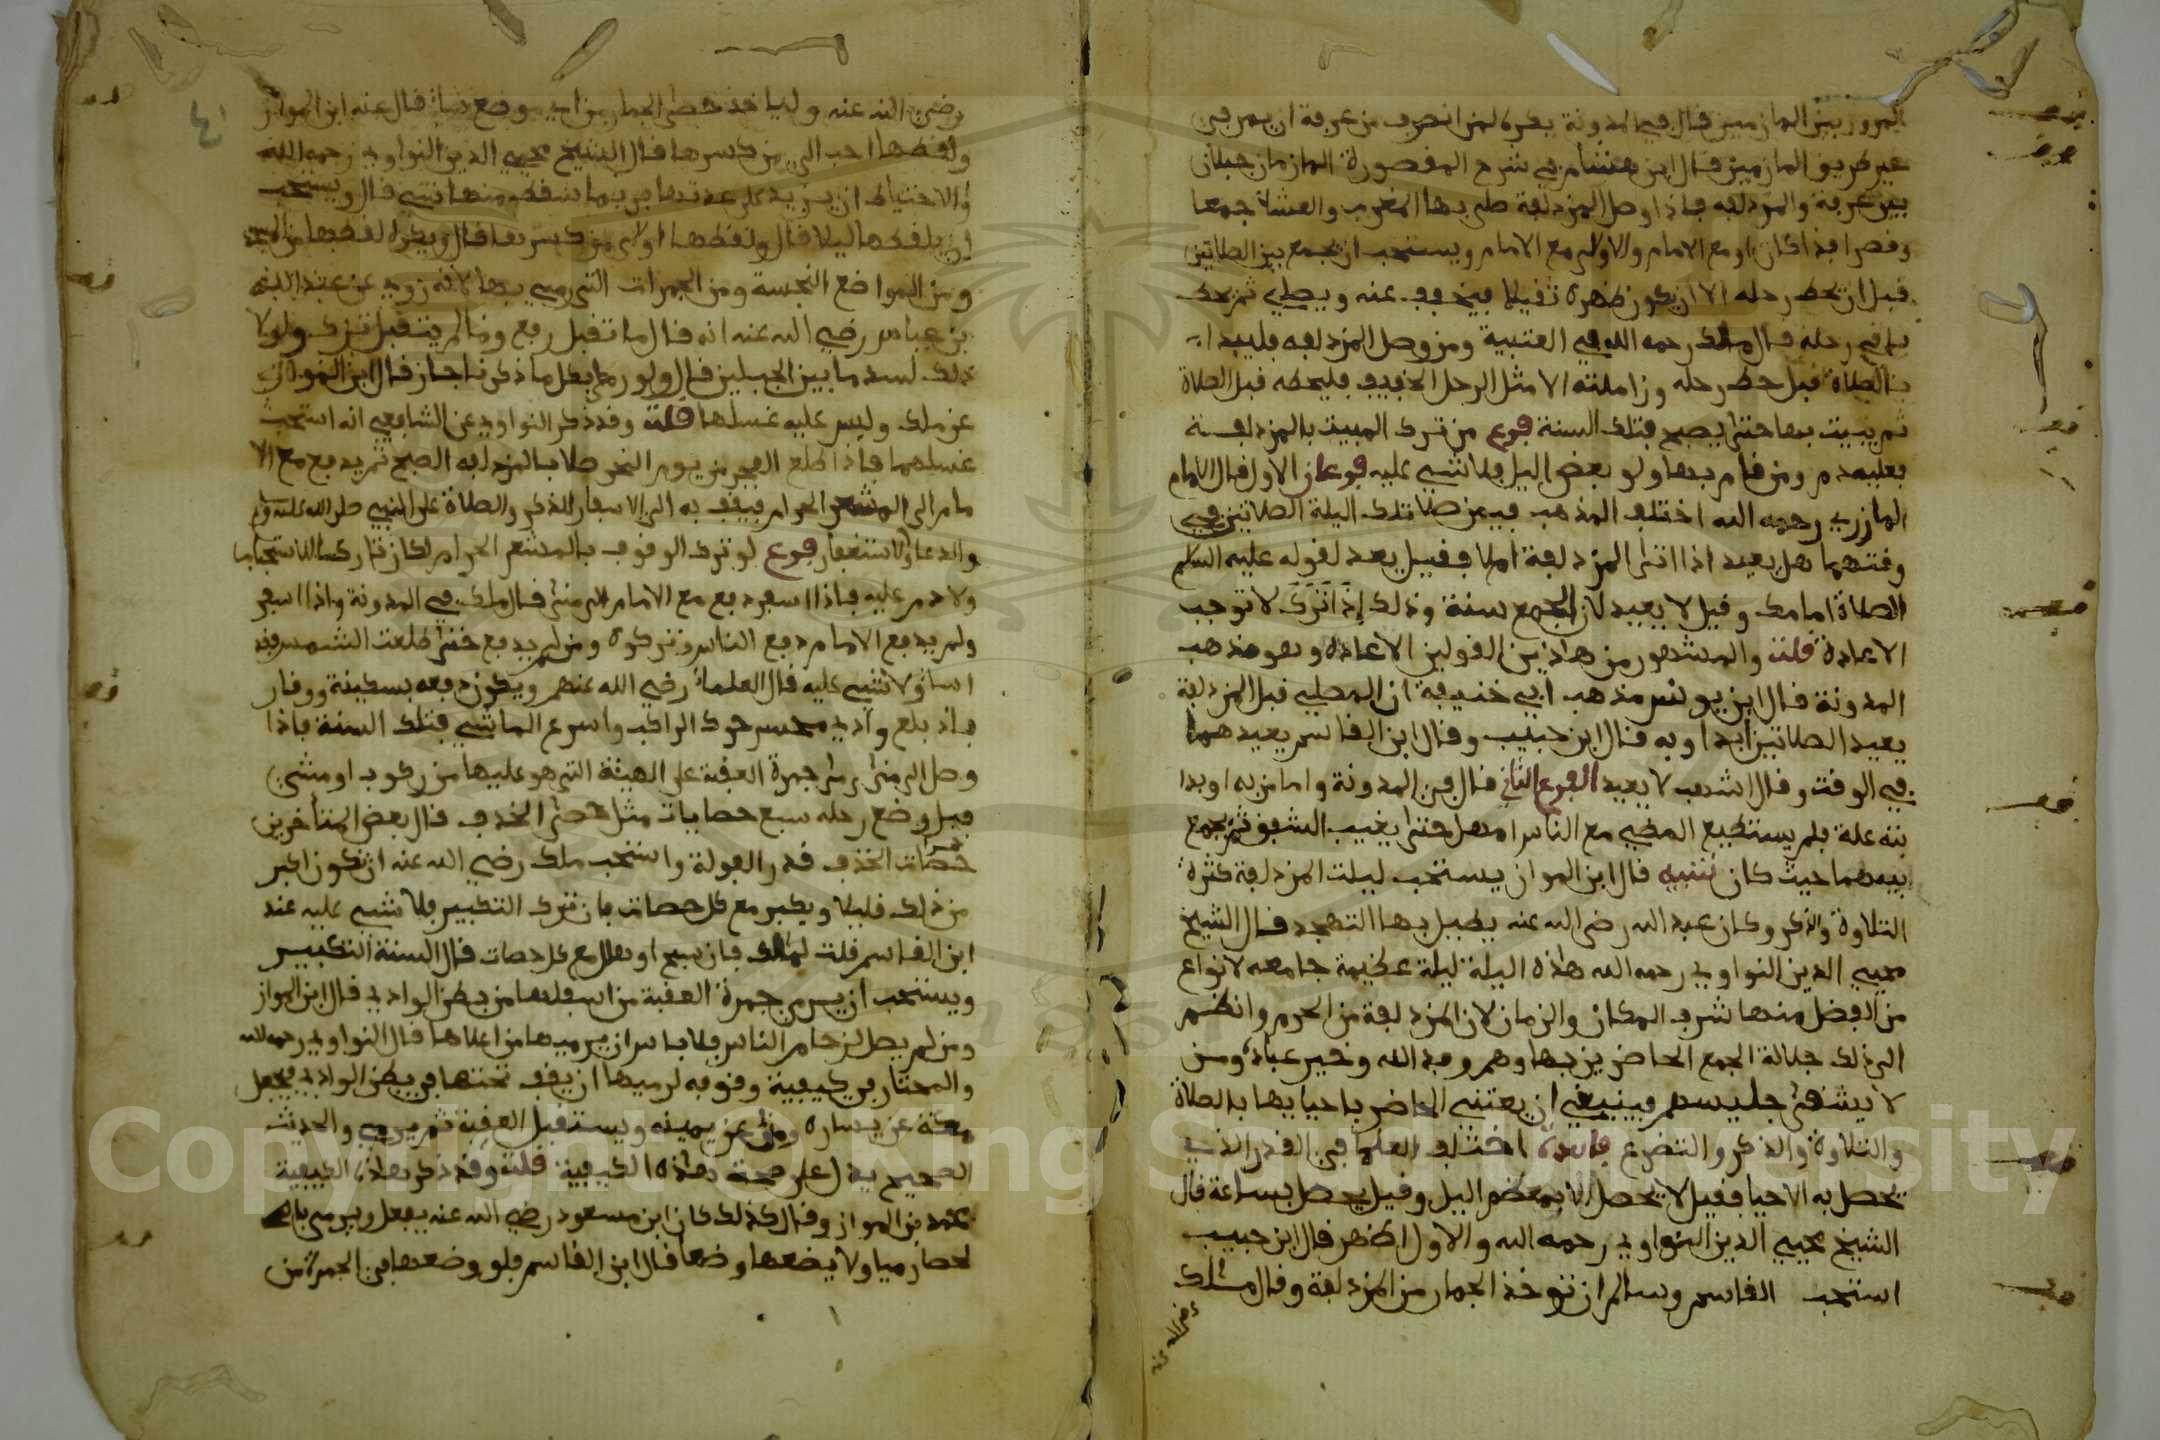 المرور بين المازمين قال في المدونة يكره لمن انصرف من عرفة ان يمر في
غير طريق المازمين قال ابن هشام في شرح المقصورة المازمان جبلان
بين عرفة والمزدلفة فاذا وصل المزدلفة صلى بها المغرب والعشاء جمعا
وقصرا فذا كان او مع الامام والاولى مع الامام ويستحب ان يجمع بين الصلاتين
قبل ان يحط رحله الا ان يكون ظهره ثقيلا فيخفف عنه ويصلي ثم يحط
باقي رحله قال ملك رحمه الله في العتبية ومن وصل المزدلفة فليبدا
بالصلاة قبل حط رحله وزاملته الا مثل الرحل الخفيف فليحطه قبل الصلاة
ثم يبيت بها حتى يصبح فتلك السنة فرع من ترك المبيت بالمزدلفة
فعليه دم ومن قام بها ولو بعض اليل فلا شيء عليه فرعان الاول قال الامام
المازري رحمه الله اختلف المذهب فيمن صلا تلك اليلة الصلاتين في
وقتهما هل يعيد اذا اتى المزدلفة ام لا فقيل يعد لقوله عليه السلام
الصلاة امامك وقيل لا يعيد لان الجمع سنة وذلك إذا ترك لا توجب
الاعادة قلت والمشهور من هاذين القولين الاعادة وهو مذهب
المدونة قال ابن يونس مذهب ابي حنيفة ان المصلي قبل المزدلفة
يعيد الصلاتين ابدا وبه قال ابن حبيب وقال ابن القاسم يعيدهما
في الوقت وقال اشهب لا يعيد الفرع الثاني قال في المدونة واما من به او بدا
بته علة فلم يستطيع المضي مع الناس امهل حتى يغيب الشفق ثم يجمع
بينهما حيث كان تنبيه قال ابن المواز يستحب ليلت المزدلفة كثرة
التلاوة والذكر وكان عبد الله رضي الله عنه يطيل بها التهجد قال الشيخ
محيي الدين النواوي رحمه الله هاذه اليلة ليلة عظيمة جامعه لانواع
من الفضل منها شرف المكان والزمان لان المزدلفة من الحرم وانضم
الى ذلك جلالة الجمع الحاضرين بها وهم وفد الله وخير عباده ومن
لا يشقى جليسهم فينبغي ان يعتني الحاضر باحيايها بالصلاة
والتلاوة والذكر والتضرع فايدة اختلف العلما في القدر الذي
يحصل به الاحيا فقيل لا يحصل الا بمعظم اليل وقيل يحصل بساعة قال
الشيخ محيي الدين النواوي رحمه الله والاول اظهر قال ابن حبيب
استحب القاسم وسالم ان توخذ الجمار من المزدلفة وقال ملك
رضي الله عنه
رضي الله عنه ولياخذ حصى الجمار من اي موضع شاء قال عنه ابن المواز
ولقطها احب الي من كسرها قال الشيخ محيي الدين النواوي رحمه الله
والاحتياط ان يزيد على عدتها فربما سقط منها شيء قال ويستحب
ان يلقطها ليلا قال ولقطها اولى من كسرها قال ويكره لقطها من
ومن المواضع النجسة ومن الجمرات التي رمي بها لانه روي عن عبد الله
بن عباس رضي الله عنه انه قال ما تقبل رفع وما لم يتقبل ترك ولولا
ذلك لسد ما بين الجبلين قال ولو رمى بكل ما ذكرنا جاز قال ابن المواز
عن ملك وليس عليه غسلها قلت وقد ذكر النواوي عن الشافعي انه استحب
غسلهما فاذا طلع الفجر من يوم النحر صلا بالمزدلفة الصبح ثم يدفع مع الا
مام الى المشعر الحرام فيقف به الى الاسفار للذكر والصلاة على النبي صلى الله عليه وسلم
والدعاء والاستغفار فرع لو ترك الوقوف بالمشعر الحرام لكان تاركا للاستحباب
ولا دم عليه فاذا اسفر دفع مع الامام الى منى قال ملك في المدونة واذا اسفر
ولم يدفع الامام دفع الناس وتركوه ومن لم يدفع حتى طلعت الشمس فقد
اساء ولا شيء عليه قال العلماء رضي الله عنهم ويكون دفعه بسكينة ووقار
فاذ بلغ وادي محسر حرك الراكب واسرع الماشي فتلك السنة فاذا
وصل الى منى رمى جمرة العقبة على الهيئة التي هو عليها من ركوب او مشي
قبل وضع رحله سبع حصايات مثل حصى الخذف قال بعض المتأخرين
حصات الخذف قدر الفولة واستحب ملك رضي الله عنه ان تكون اكبر
من ذلك قليلا ويكبر مع كل حصات فان ترك التكبير فلا شيء عليه عند
ابن القاسم قلت لمالك فان سبح او هلل مع كل حصات قال السنة التكبير
ويستحب ان يرمي جمرة العقبة من اسفلها من بطن الوادي قال ابن المواز
ومن لم يصل لزحام الناس فلا باس ان يرميها من اعلاها قال النواوي رحمه الله
والمختار في كيفية وقوفه لرميها ان يقف تحتها في بطن الوادي فيجعل
مكة عن يساره ومنى عن يمينه ويستقبل العقبة ثم يرمي والحديث
الصحيح يدل على صحة هاذه الكيفية قلت وقد ذكر هاذه الكيفية
محمد بن المواز وقال كذلك كان ابن مسعود رضي الله عنه يفعل ويرمي با
لحصا رميا ولا يضعها وضعا قال ابن القاسم فلو وضعها في الجمرة من
Copyright © King Saud University